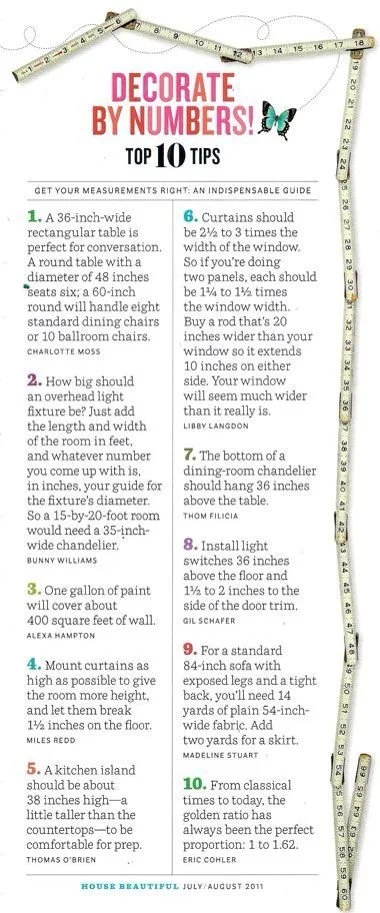 DECORATE
BY NUMBERS!
TOP 10 TIPS
GET YOUR MEASUREMENTS RIGHT: AN INDISPENSABLE GUIDE
1. A 36-inch-wide
rectangular table is
perfect for conversation.
A round table with a
diameter of 48 inches
seats six; a 60-inch
round will handle eight
standard dining chairs
or 10 ballroom chairs.
CHARLOTTE MOSS
2. How big should
an overhead light
fixture be? Just add
the length and width
of the room in feet,
and whatever number
you come up with is,
in inches, your guide for
the fixture's diameter.
So a 15-by-20-foot room
would need a 35-inch-
wide chandelier.
BUNNY WILLIAMS
3. One gallon of paint
will cover about
400 square feet of wall.
ALEXA HAMPTON
4. Mount curtains as
high as possible to give
the room more height,
and let them break
1½ inches on the floor.
MILES REDD
5. A kitchen island
should be about
38 inches high—a
little taller than the
countertops—to be
comfortable for prep.
THOMAS O'BRIEN
6. Curtains should
be 2½ to 3 times the
width of the window.
So if you're doing
two panels, each should
be 1¼ to 1½ times
the window width.
Buy a rod that's 20
inches wider than your
window so it extends
10 inches on either
side. Your window
will seem much wider
than it really is.
LIBBY LANGDON
7. The bottom of a
dining-room chandelier
should hang 36 inches
above the table.
THOM FILICIA
8. Install light
switches 36 inches
above the floor and
1½ to 2 inches to the
side of the door trim.
GIL SCHAFER
9. For a standard
84-inch sofa with
exposed legs and a tight
back, you'll need 14
yards of plain 54-inch-
wide fabric. Add
two yards for a skirt.
MADELINE STUART
10. From classical
times to today, the
golden ratio has
always been the perfect
proportion: 1 to 1.62.
ERIC COHLER
HOUSE BEAUTIFUL JULY/AUGUST 2011